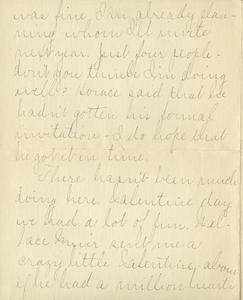 was fine. I'm already plan-
ning whom I'll invite
next year. Just four people-
don't you think I'm doing
well? Horace said that he
hadn't gotten his formal
invitation - I do hope that
he got it in time.
There hasn't been much
doing here. Valentine day
we had a lot of fun. Wal-
lace sent me a
crazy little Valentine, about
if he had a million hearts